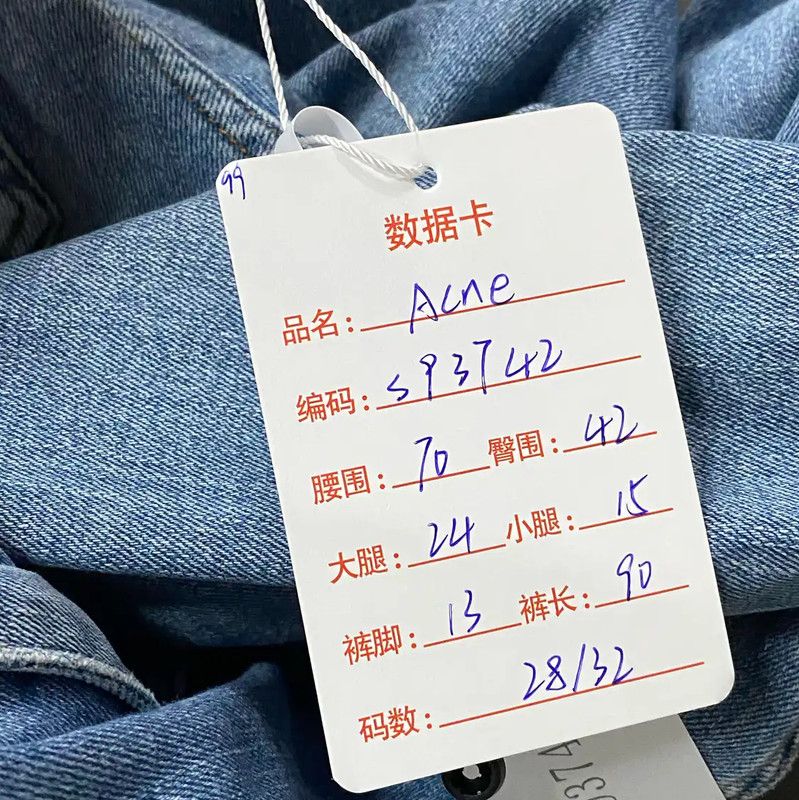 99
数据卡
品名: Acne
编码: S93742
腰围: 70 臀围: 42
大腿: 24 小腿: 15
裤脚: 13 裤长: 90
码数: 28/32